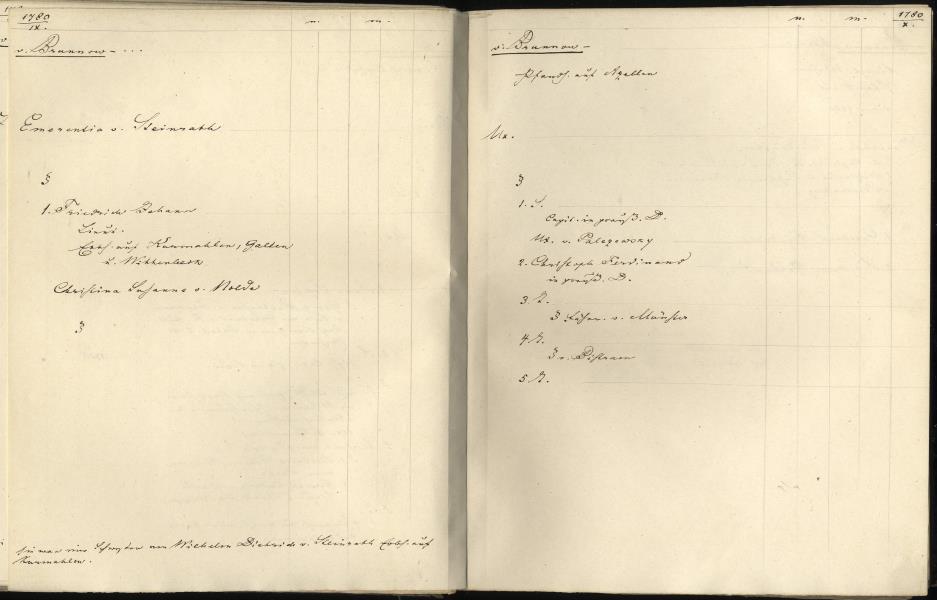 1780
IX.
n. m.
v. Brunnow – ...
Emerentia v. Steinrath
§
1. Friedrich Johann
Lieut.
Erbh. auf Kurmahlen, Galten
u. Wittenbeck
Christina Susanna v. Nolde
§
Sie war eine Schwester von Wilhelm Dietrich v. Steinrath Erbh. auf
Kurmahlen.
n. m. 1780
X.
v. Brunnow –
Pfandh. auf Apellen
Ux.
§
1. S.
Capit. in preuß. D.
Ux. v.
2. Christoph Ferdinand
in preuß. D.
3. T.
§ v. Münster
4. T.
§ v. Distram
5. T.